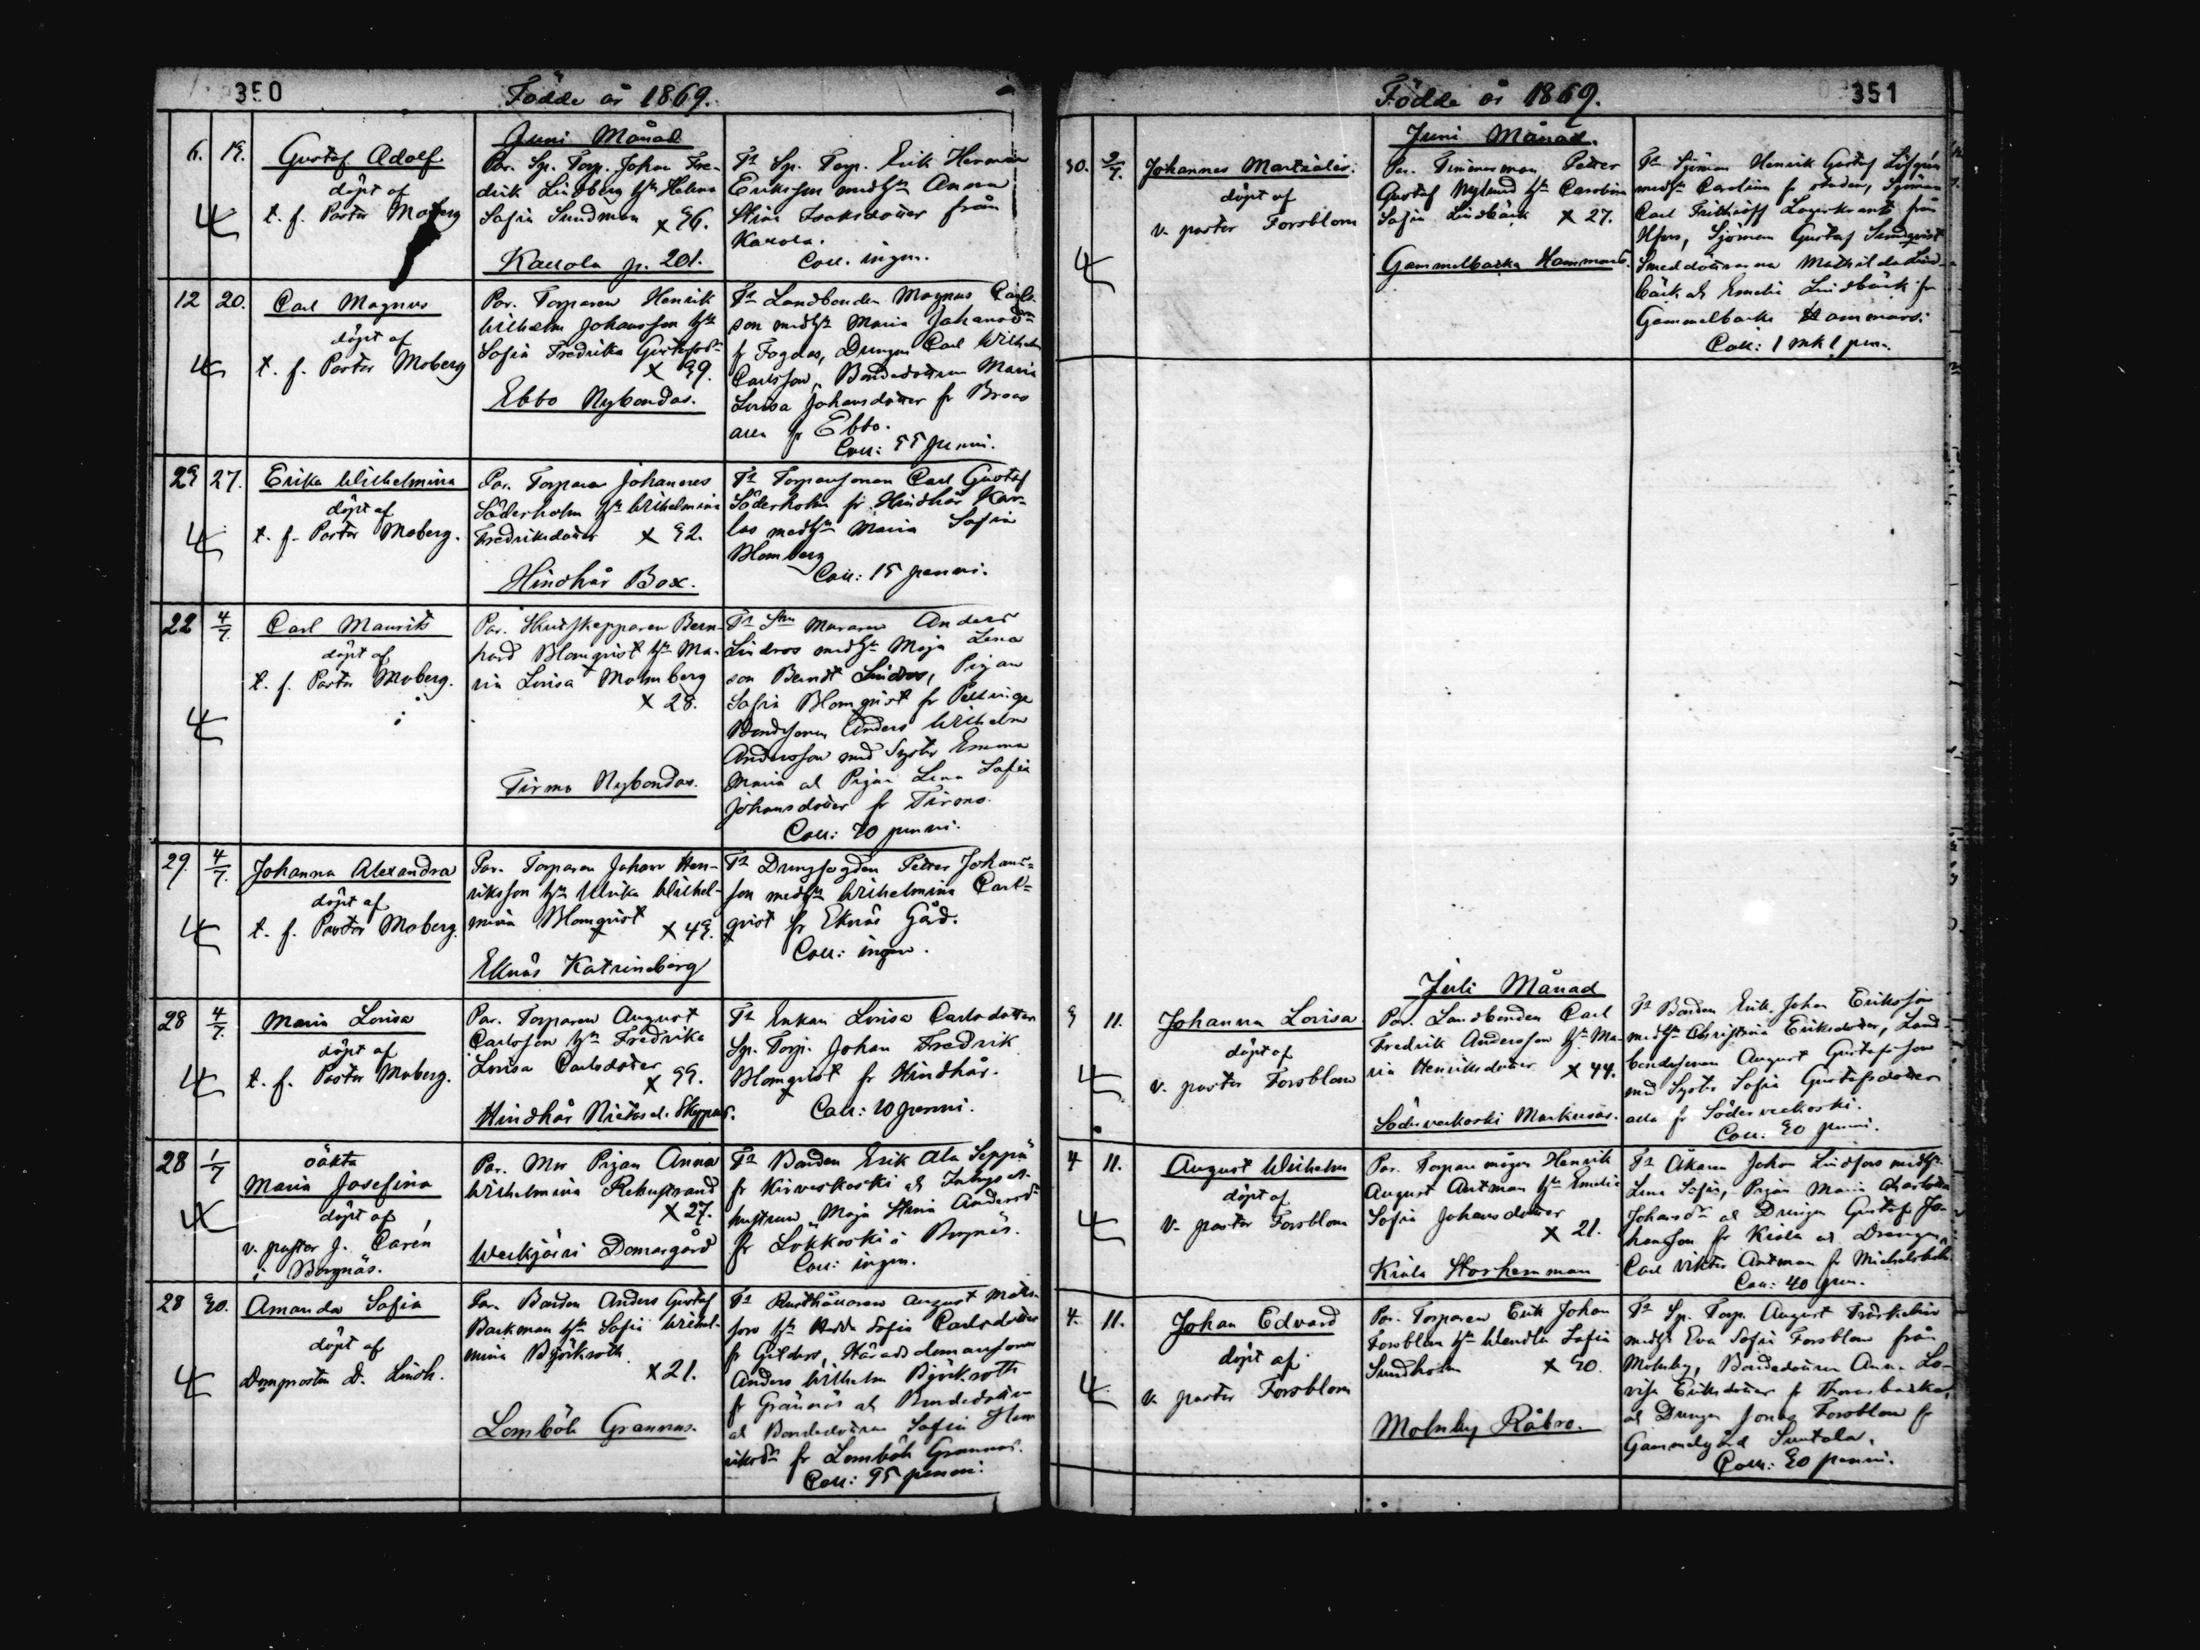 350
Födde år 1869.
Juni Månad
6. 19.
Gustaf Adolf
döpt af
t. f. Pastor Moberg
Par. Sp. Torp. Johan Fre-
drik Lindberg hu Helena
Sofia Sundman x 36.
Karola p. 201.
Ft Sp. Torp. Erik Herman
Eriksson med hu Anna
Stina Isaksdotter från
Karola.
Coll. ingen.
12 20.
Carl Magnus
döpt af
t. f. Pastor Moberg
Par. Torparen Henrik
Wilhelm Johansson hu
Sofia Fredrika Gustafsdr
x 39.
Ebbo Nybondas.
Ft Landbonden Magnus Carls-
son med hu Maria Johansdr
fr Fogdas, Drengen Carl Wilhelm
Carlsson, Bondedottren Maria
Lovisa Johansdotter fr
fr Ebbo.
Coll: 55 penni.
23 27.
Erika Wilhelmina
döpt af
t. f. Pastor Moberg.
Par. Torparen Johannes
Söderholm hu Wilhelmina
Fredriksdotter x 32.
Hindhår Box.
Ft Torparsonen Carl Gustaf
Söderholm fr Hindhår Kar-
las med hu Maria Sofia
Blomberg
Coll: 15 penni.
22 4/7.
Carl Maurits
döpt af
t. f. Pastor Moberg.
Par. Skutskepparen Bern-
hard Blomqvist hu Ma-
ria Lovisa Malmberg
x 28.
Tirmo Nybondas.
Ft Muraren Anders
Lindros med hu Maja Lena
son Berndt Lindros, Pigan
Sofia Blomqvist fr Pellinge
Bondesonen Anders Wilhelm
Andersson med Syster Emma
Maria och Pigan Lena Sofia
Johansdotter fr Tirmo.
Coll: 70 penni.
29. 4/7.
Johanna Alexandra
döpt af
t. f. Pastor Moberg.
Par. Torparen Johan Hen-
riksson hu Ulrika Wilhel-
mina Blomqvist x 43.
Eknäs Katrineberg
Ft Drengfogden Petter Johans-
son med hu Wilhelmina Carl-
qvist fr Eknäs Gård.
Coll: ingen.
28 4/7.
Maria Lovisa
döpt af
t. f. Pastor Moberg.
Par. Torparen August
Carlsson hu Fredrika
Lovisa Carlsdotter
x 33.
Hindhår Skeppars.
Ft Enkan Lovisa Carlsdotter
Sp. Torp. Johan Fredrik
Blomqvist fr Hindhår.
Coll: 20 penni.
28 1/7
oäkta
Maria Josefina
döpt af
v. pastor J. Carén
i Borgnäs.
Par. Mor Pigan Anna
Wilhelmina
x 27.
Weckjärvi Domargård
Ft Bonden Erik Ala Seppä
fr Kirveskoski och Inhyses-
hustrun Maja Stina Andersdr
fr Lukkoski i Borgnäs.
Coll: ingen.
28 30.
Amanda Sofia
döpt af
Domprosten D. Lindh.
Par. Bonden Anders Gustaf
Backman hu Sofia Wilhel-
mina Björkroth
x 21.
Lomböle Grannas.
Ft Rusthållaren August
hu Hedda Sofia Carlsdotter
fr Gilders, Häradsdomarsonen
Anders Wilhelm Björkroth
fr Grännäs
och Bondedottren Sofia Hen-
riksdr fr Lomböle Grannas.
Coll: 95 penni.
Födde år 1869.
351
Juni Månad.
30. 2/7.
Johannes Martialis.
döpt af
v. pastor Forsblom
Par. Timmerman Petter
Gustaf Nylund hu Carolina
Sofia Lindbäck x 27.
Gammelbacka Hammars.
Ft Sjöman Henrik Gustaf Löfgren
med hu Carolina fr staden, Sjöman
Carl Frithioff Lagerkrantz från
Hfors, Sjöman Gustaf Sundqvist
Smeddöttrarna Mathilda Lind-
bäck och Emelie Lindbäck fr
Gammelbacka Hammars.
Coll: 1 mk
Juli Månad
3 11.
Johanna Lovisa
döpt af
v. pastor Forsblom
Par. Landbonden Carl
Fredrik Andersson hu Ma-
ria Henriksdotter x 44.
Söderveckoski Markusas.
Ft Bonden Erik Johan Eriksson
med hu Christina Eriksdotter, Land-
bondesonen August Gustafsson
med Syster Sofia Gustafsdotter
alla fr Söderveckoski.
Coll: 30 penni.
4 11.
August Wilhelm
döpt af
v. pastor Forsblom
Par. Torparemågen Henrik
August Antman hu Emelie
Sofia Johansdotter
x 21.
Kiala Storhemman
Ft Åkaren Johan Lindfors med hu
Lena Sofia, Pigan Maria Charlotta
Johansdr och Drengen Gustaf Jo-
hansson fr Kiala och Drengen
Carl Viktor Antman fr Michelsböle
Coll: 40 pen.
4. 11.
Johan Edvard
döpt af
v. pastor Forsblom
Par. Torparen Erik Johan
Forsblom hu Wendla Sofia
Sundholm x 30.
Molnby Råbro.
Ft Sp. Torp. August
med hu Eva Sofia Forsblom från
Molnby, Bondedottren Anna Lo-
visa Eriksdotter fr Thorsbacka,
och Drengen Jonas Forsblom fr
Gammelgård Suntala.
Coll: 30 penni.